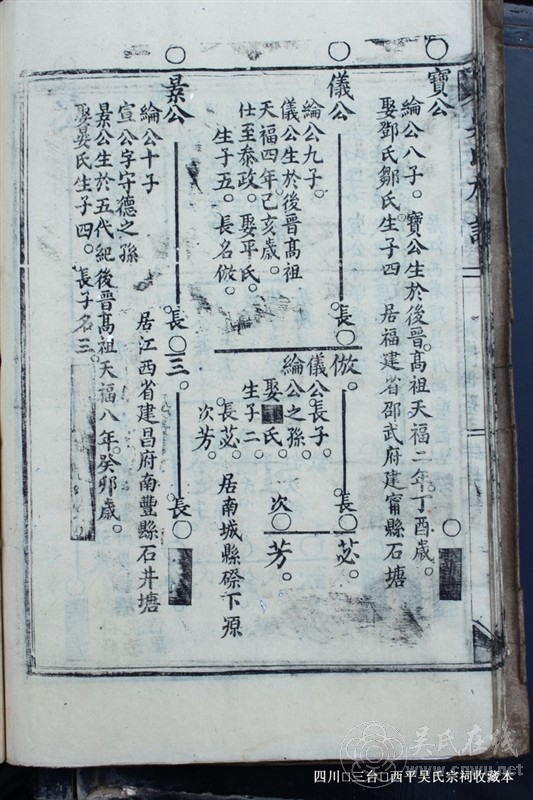 寶公
綸公八子。寶公生於後晉高祖天福二年。丁酉歲。
娶鄧氏鄒氏生子四 居福建省邵武府建甯縣石塘
儀公
綸公九子。
儀公生於後晉高祖
天福四年。己亥歲。
仕至泰政。娶平氏。
生子五。長名倣。
長〇倣。
儀公長子。
綸公之孫。
娶 氏
生子二。
長苾。
次芳。
居南城縣磜下源
長〇苾。
次〇芳。
景公
綸公十子
宣公字守德之孫
景公生於五代紀後晉高祖天福八年。癸卯歲。
娶晏氏生子四。長子名三。
長〇三。
居江西省建昌府南豐縣石井塘
長〇
吳氏在線
www.cnwu.net
四川□三台□西平吴氏宗祠收藏本